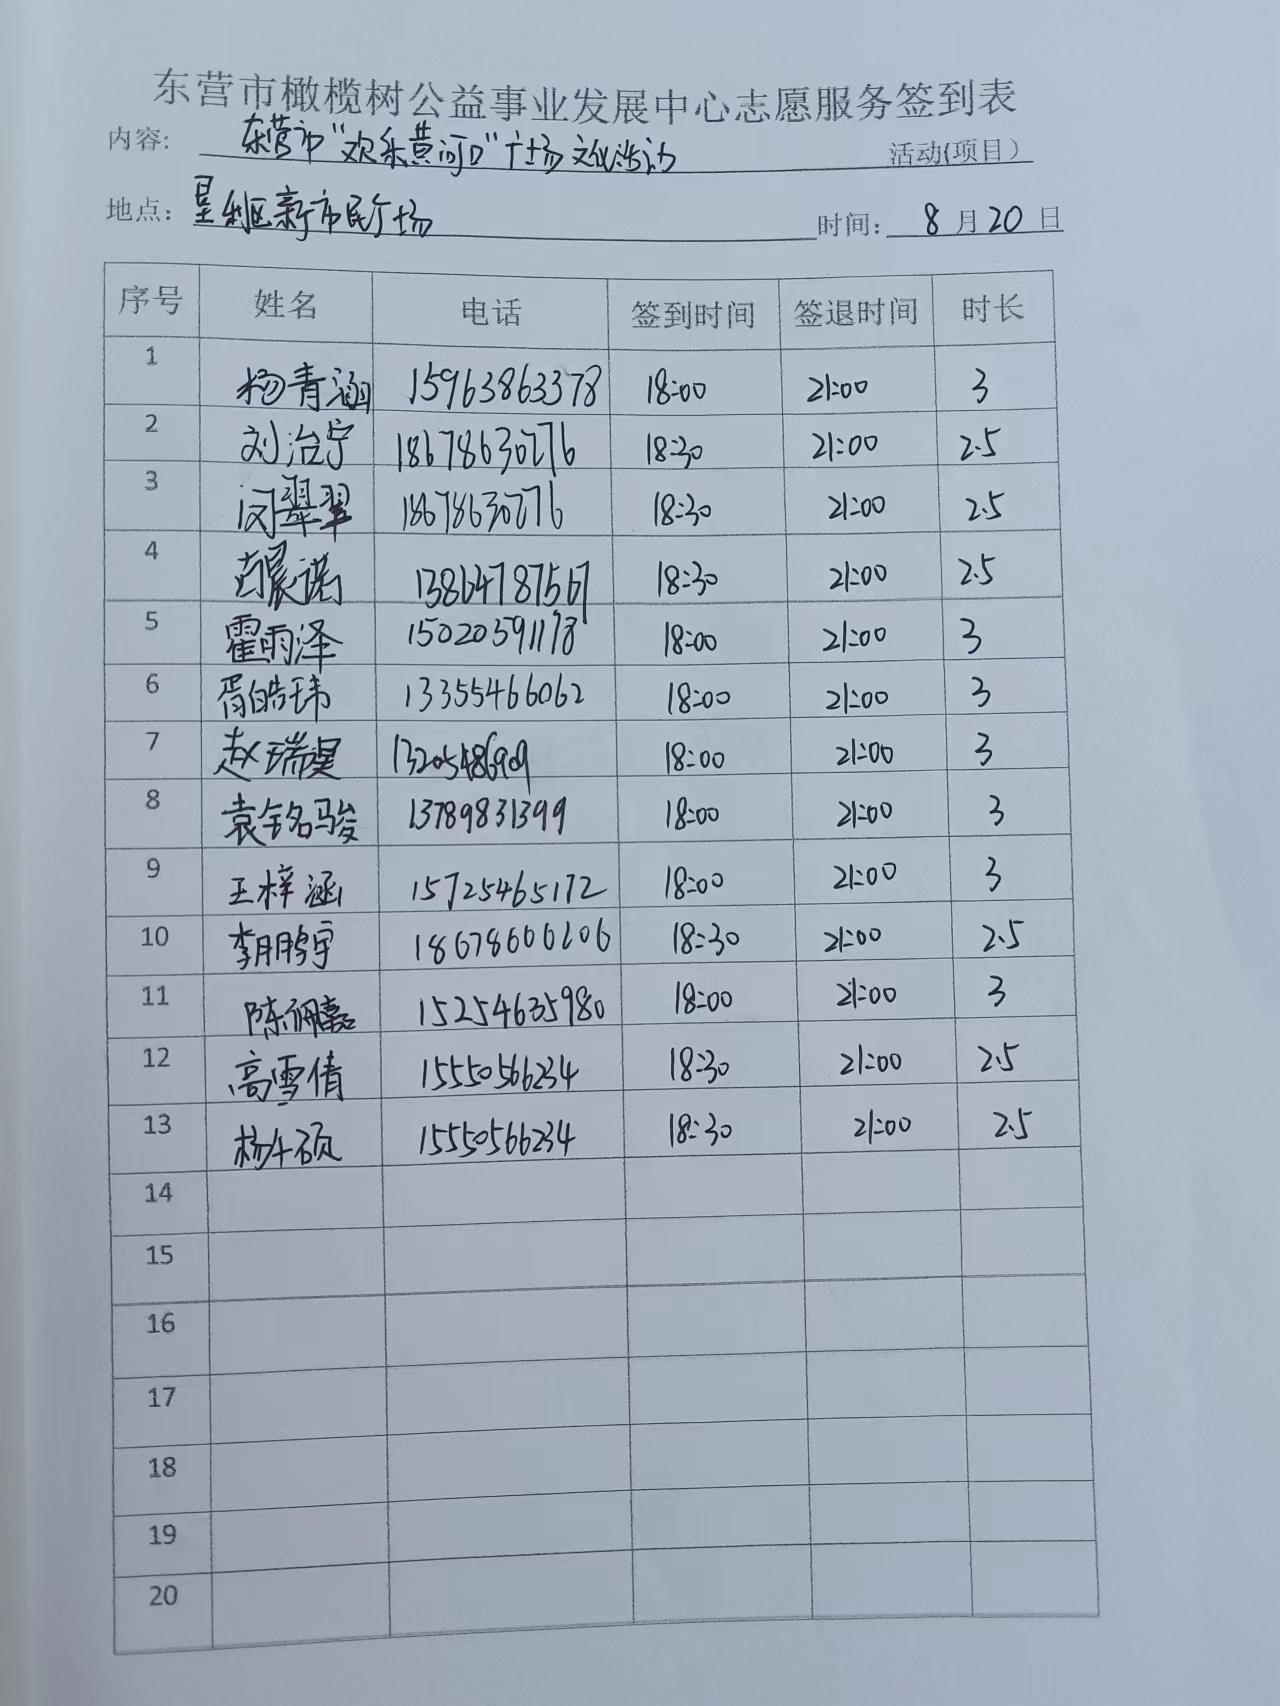 东营市橄榄树公益事业发展中心志愿服务签到表
内容: 东营市“欢乐黄河口”广场文化活动 活动(项目)
地点: 垦利区新市民广场 时间: 8月20日
序号 姓名 电话 签到时间 签退时间 时长
1 杨青涵 15963863378 18:00 21:00 3
2 刘治宁 18678630276 18:30 21:00 2.5
3 闵翠翠 18678630276 18:30 21:00 2.5
4 晨诺 13864787567 18:30 21:00 2.5
5 霍雨泽 15020591178 18:00 21:00 3
6 胥皓玮 13355466062 18:00 21:00 3
7 赵瑞昊 18:00 21:00 3
8 袁铭骏 13789831399 18:00 21:00 3
9 王梓涵 15725465172 18:00 21:00 3
10 李鹏宇 18678606206 18:30 21:00 2.5
11 陈佩嘉 15254635980 18:00 21:00 3
12 高雪倩 15550566234 18:30 21:00 2.5
13 杨硕 15550566234 18:30 21:00 2.5
14
15
16
17
18
19
20